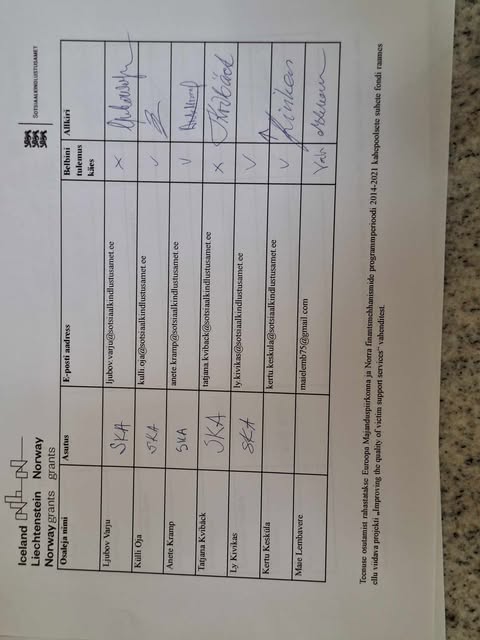 Iceland
Liechtenstein Norway
Norway grants grants
SOTSIAALKINDLUSTUSAMET
Osaleja nimi Asutus E-posti aadress Belbini tulemus käes Allkiri
Ljubov Varju SKA ljubov.varju@sotsiaalkindlustusamet.ee x
Külli Oja SKA kulli.oja@sotsiaalkindlustusamet.ee v
Anete Kramp SKA anete.kramp@sotsiaalkindlustusamet.ee v
Tatjana Kvibäck SKA tatjana.kviback@sotsiaalkindlustusamet.ee x Kvibäck
Ly Kivikas SKA ly.kivikas@sotsiaalkindlustusamet.ee v
Kertu Kesküla kertu.keskula@sotsiaalkindlustusamet.ee v Kivikas
Maie Lembavere maielemb75@gmail.com
Teenuse osutamist rahastatakse Euroopa Majanduspiirkonna ja Norra finantsmehhanismide programmperioodi 2014-2021 kahepoolsete suhete fondi raames
ellu viidava projekti „Improving the quality of victim support services" vahenditest.